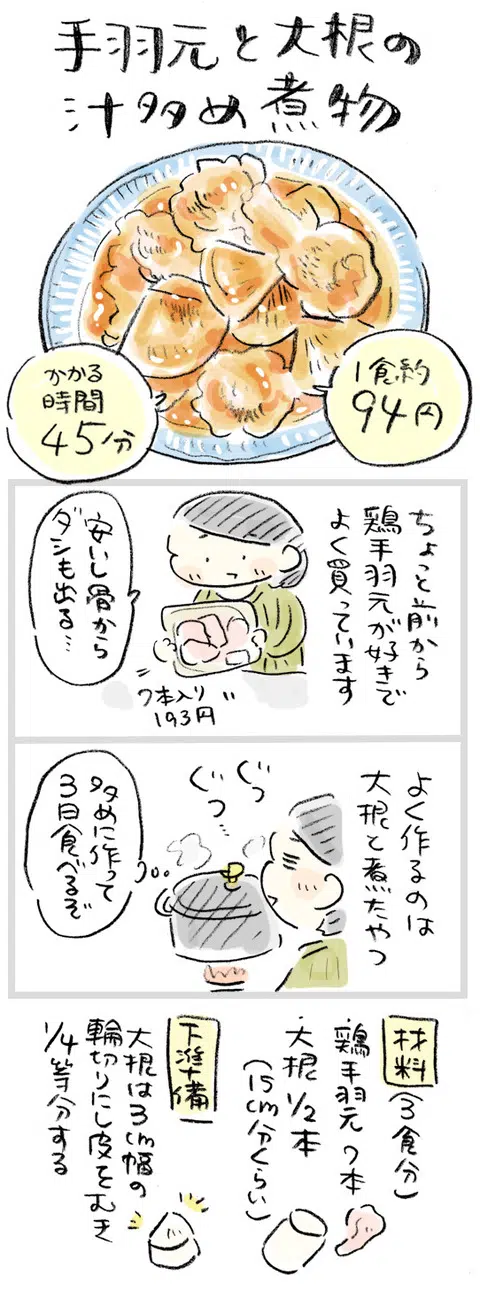 手羽元と大根の
汁多め煮物
かかる
時間
45分
1食約
94円
ちょっと前から
鶏手羽元が好きで
よく買っています
安いし骨から
ダシも出る…
7本入り
193円
よく作るのは
大根と煮たやつ
ぐつ
ぐつ…
多めに作って
3日食べるぞ
材料(3食分)
鶏手羽元7本
大根1/2本
(15cm分くらい)
下準備
大根は3cm幅の
輪切りにし皮をむき
1/4等分する